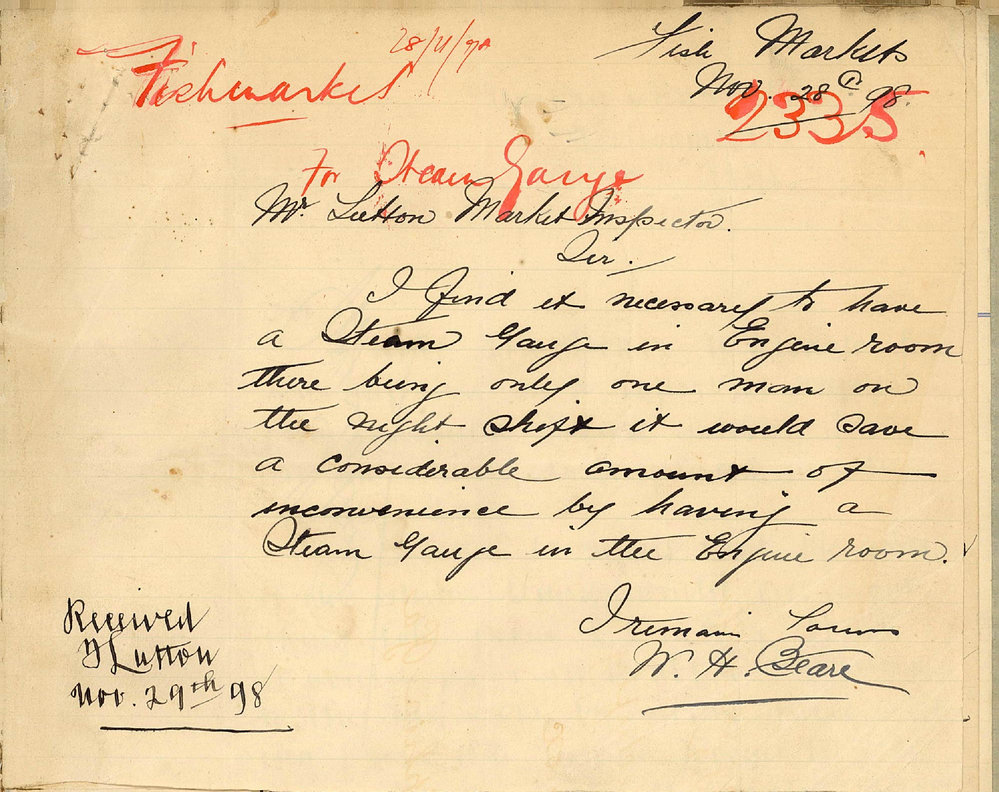 28/11/98
Fishmarket
Fish Markets
Nov. 28th 98.
2335
For Steam Gauge
Mr. Lutton Market Inspector.
Sir.
I find it necessary to have
a Steam Gauge in Engine room
there being only one man on
the night shift it would save
a considerable amount of
inconvenience by having a
Steam Gauge in the Engine room.
I remain Yours
W. H. Beare
Received
Lutton
Nov. 29th 98